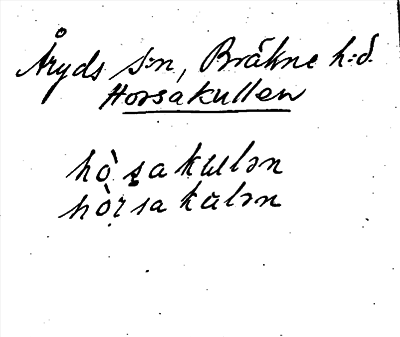 Åryds s:n, Bräkne h:d.
Horsakullen
hò̀ʂakullən
hòrsakulən